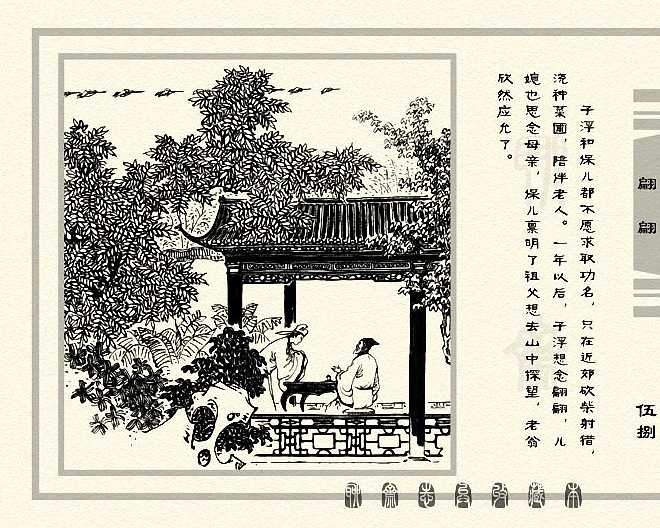 子浮和保儿都不愿求取功名，只在近郊砍柴射猎，
浇种菜圃，陪伴老人。一年以后，子浮想念翩翩，儿
媳也思念母亲，保儿禀明了祖父想去山中探望，老翁
欣然应允了。
翩翩
伍捌